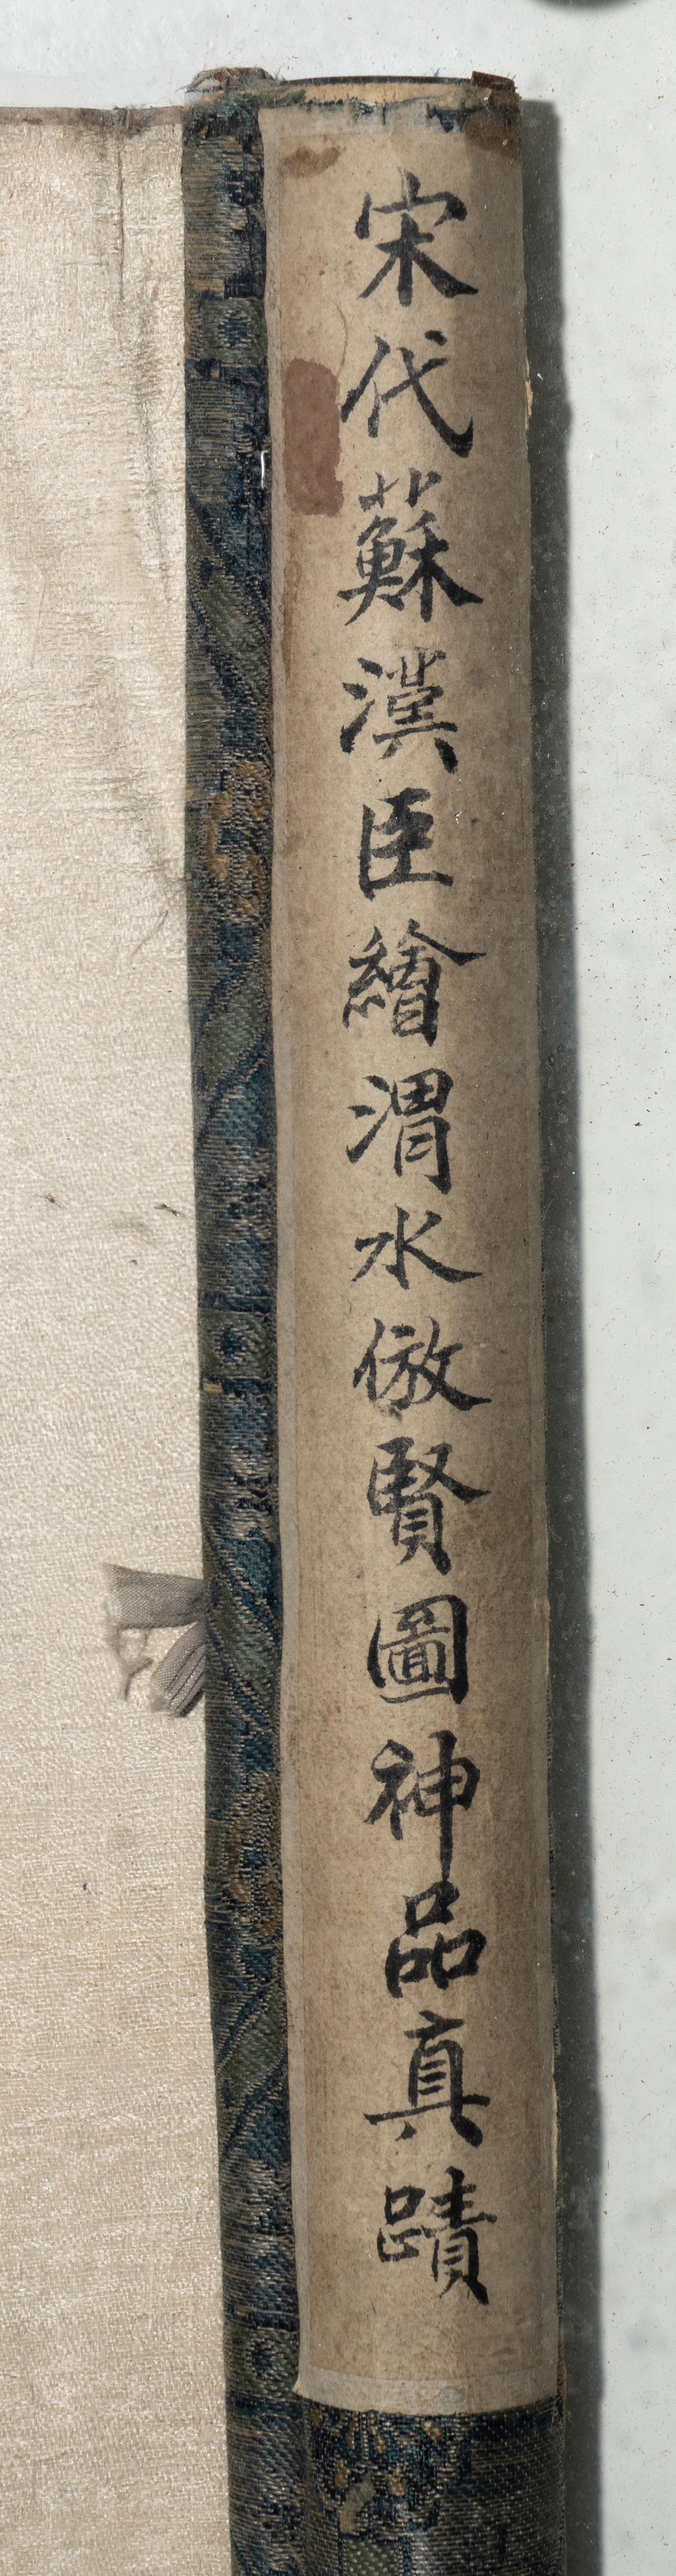 宋代蘇漢臣繪渭水倣賢圖神品真蹟